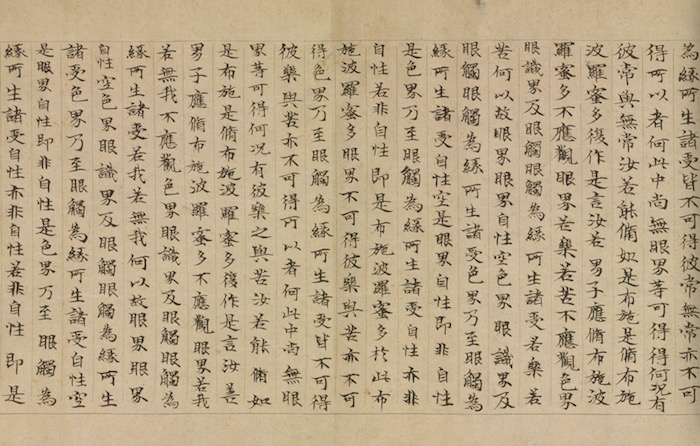 為緣所生諸受皆不可得彼常無常亦不可
得所以者何此中尚無眼界等可得何況有
彼常與無常汝若能脩如是布施是脩布施
波羅蜜多復作是言汝善男子應脩布施波
羅蜜多不應觀眼界若樂若苦不應觀色界
眼識界及眼觸眼觸為緣所生諸受若樂若
苦何以故眼界眼界自性空色界眼識界及
眼觸眼觸為緣所生諸受色界乃至眼觸為
緣所生諸受自性空是眼界自性即非自性
是色界乃至眼觸為緣所生諸受自性亦非
自性若非自性即是布施波羅蜜多於此布
施波羅蜜多眼界不可得彼樂與苦亦不可
得色界乃至眼觸為緣所生諸受皆不可得
彼樂與苦亦不可得所以者何此中尚無眼
界等可得何況有彼樂之與苦汝若能脩如
是布施是脩布施波羅蜜多復作是言汝善
男子應脩布施波羅蜜多不應觀眼界若我
若無我不應觀色界眼識界及眼觸眼觸為
緣所生諸受若我若無我何以故眼界眼界
自性空色界眼識界及眼觸眼觸為緣所生
諸受色界乃至眼觸為緣所生諸受自性空
是眼界自性即非自性是色界乃至眼觸為
緣所生諸受自性亦非自性若非自性即是